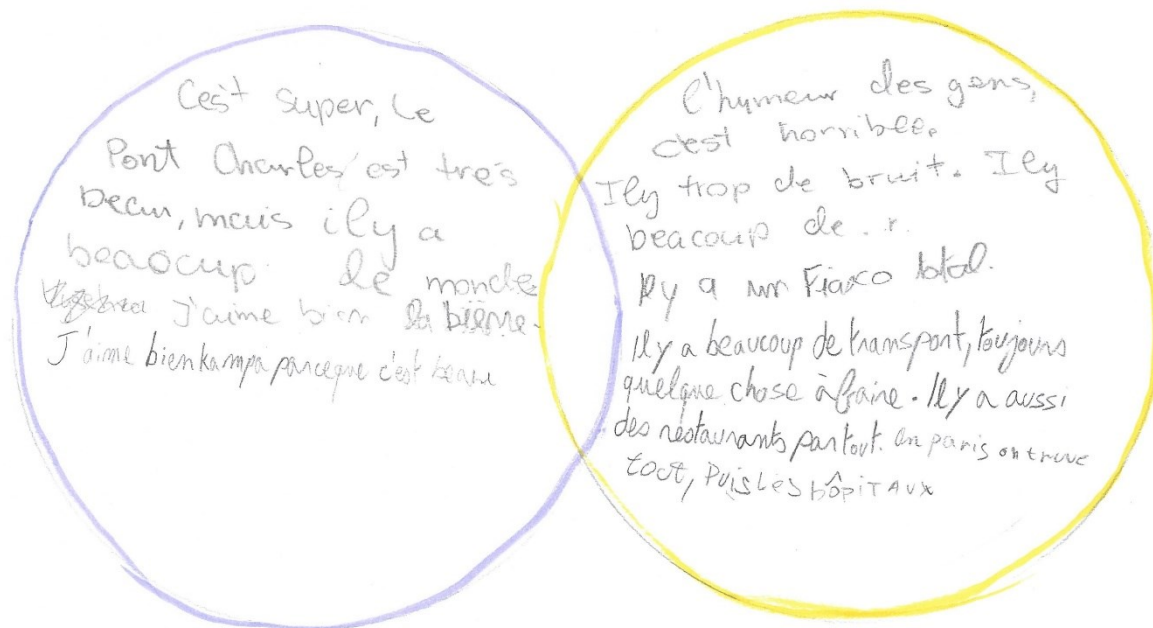 C'est super, Le
Pont Charles est très
beau, mais il y a
beaocup de monde
J'aime bien la bière.
J'aime bien kampa parceque c'est beau
l'humeur des gens,
c'est horrible.
Il y trop de bruit. Il y
beacoup de . r.
Il y a un Fiaxco total.
Il y a beaucoup de transport, toujours
quelque chose à faire. Il y a aussi
des restaurants partout. en paris on trouve
tout, Puis Les hôpitaux